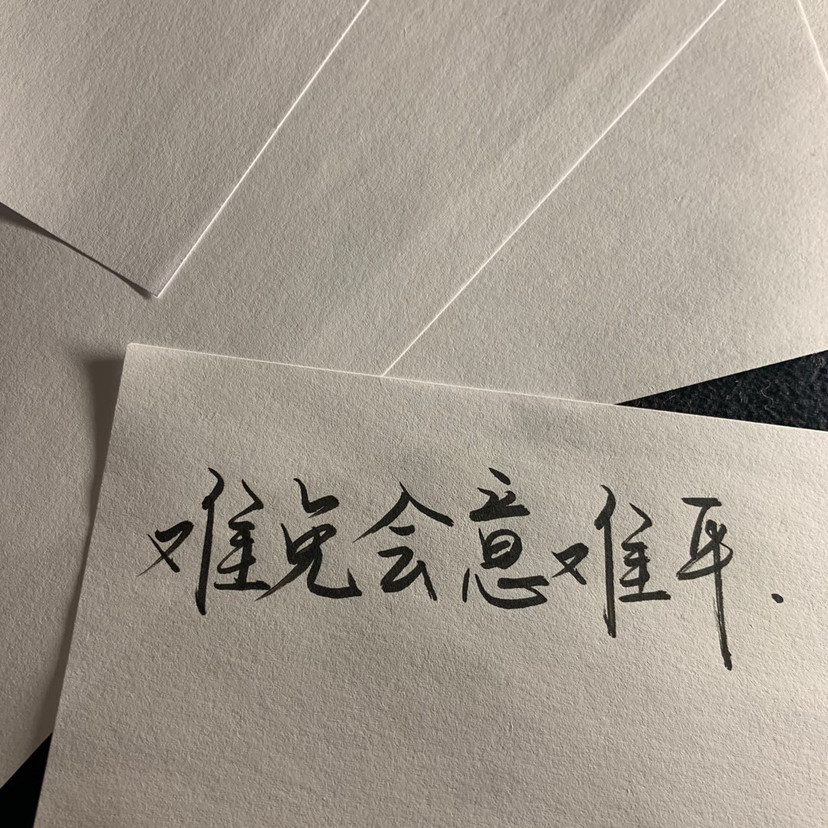 难免会意难平.